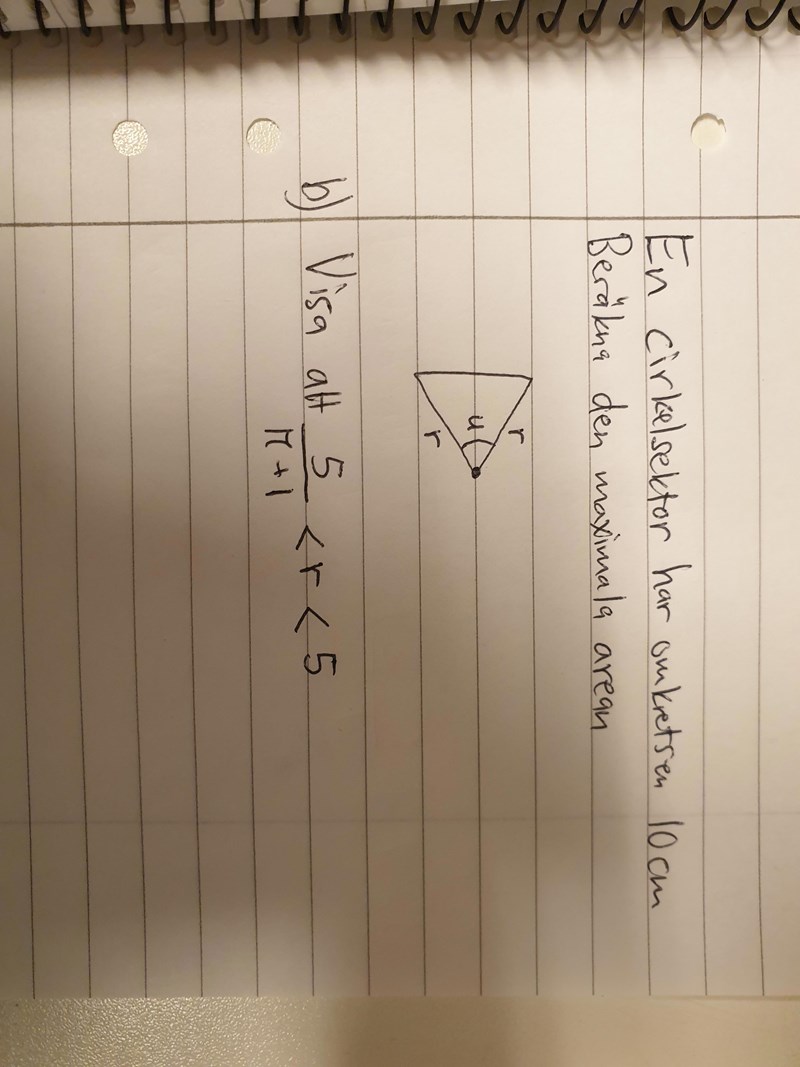 En cirkelsektor har omkretsen 10 cm
Beräkna den maximala arean
u
r
r
b) Visa att 5/(π+1) < r < 5